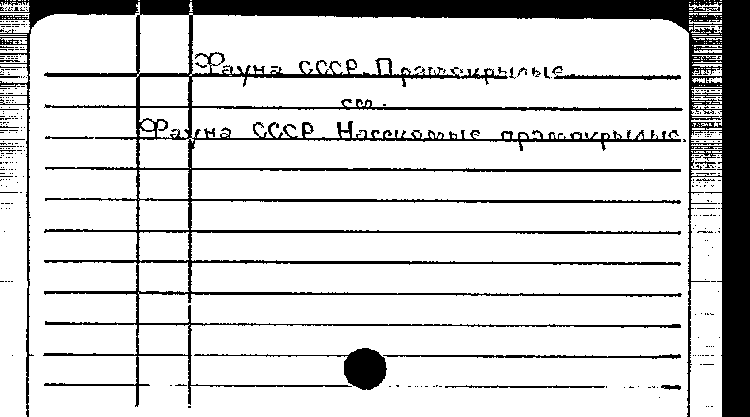 Фауна СССР. Прямокрылые
см.
Фауна СССР. Насекомые прямокрылые